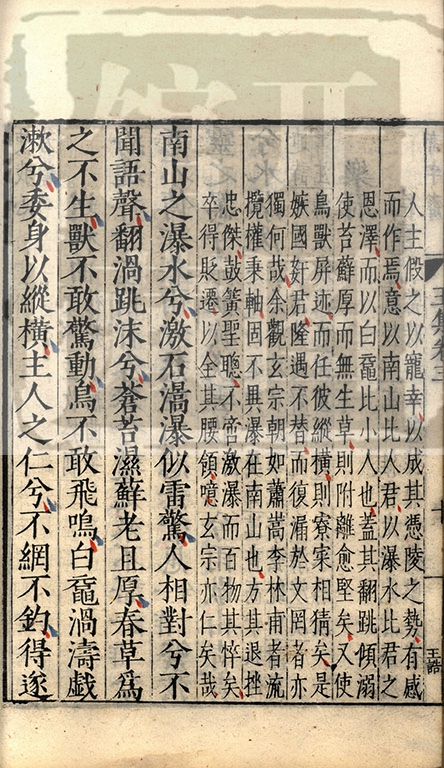 人主假之以寵幸以成其憑陵之勢有感
而作焉意以南山比人君以瀑水比君之
恩澤而以白黿比小人也蓋其翻跳傾溺
使苔蘚厚而無生草則附離愈堅矣又使
鳥獸屏迹而任彼縱橫則寮寀相猜矣是
嫉國奸君隆遇不替而復漏於文罔者亦
獨何哉余觀玄宗朝如蕭嵩李林甫者流
攬權秉軸固不異瀑在南山也方其退挫
忠傑鼓簧聖聰不啻激瀑而百物其悴矣
卒得貶遷以全其腰領噫玄宗亦仁矣哉
南山之瀑水兮激石滈瀑似雷驚人相對兮不
聞語聲翻渦跳沫兮蒼苔濕蘚老且厚春草為
之不生獸不敢驚動鳥不敢飛鳴白黿渦濤戲
漱兮委身以縱橫主人之仁兮不網不釣得遂
王誥